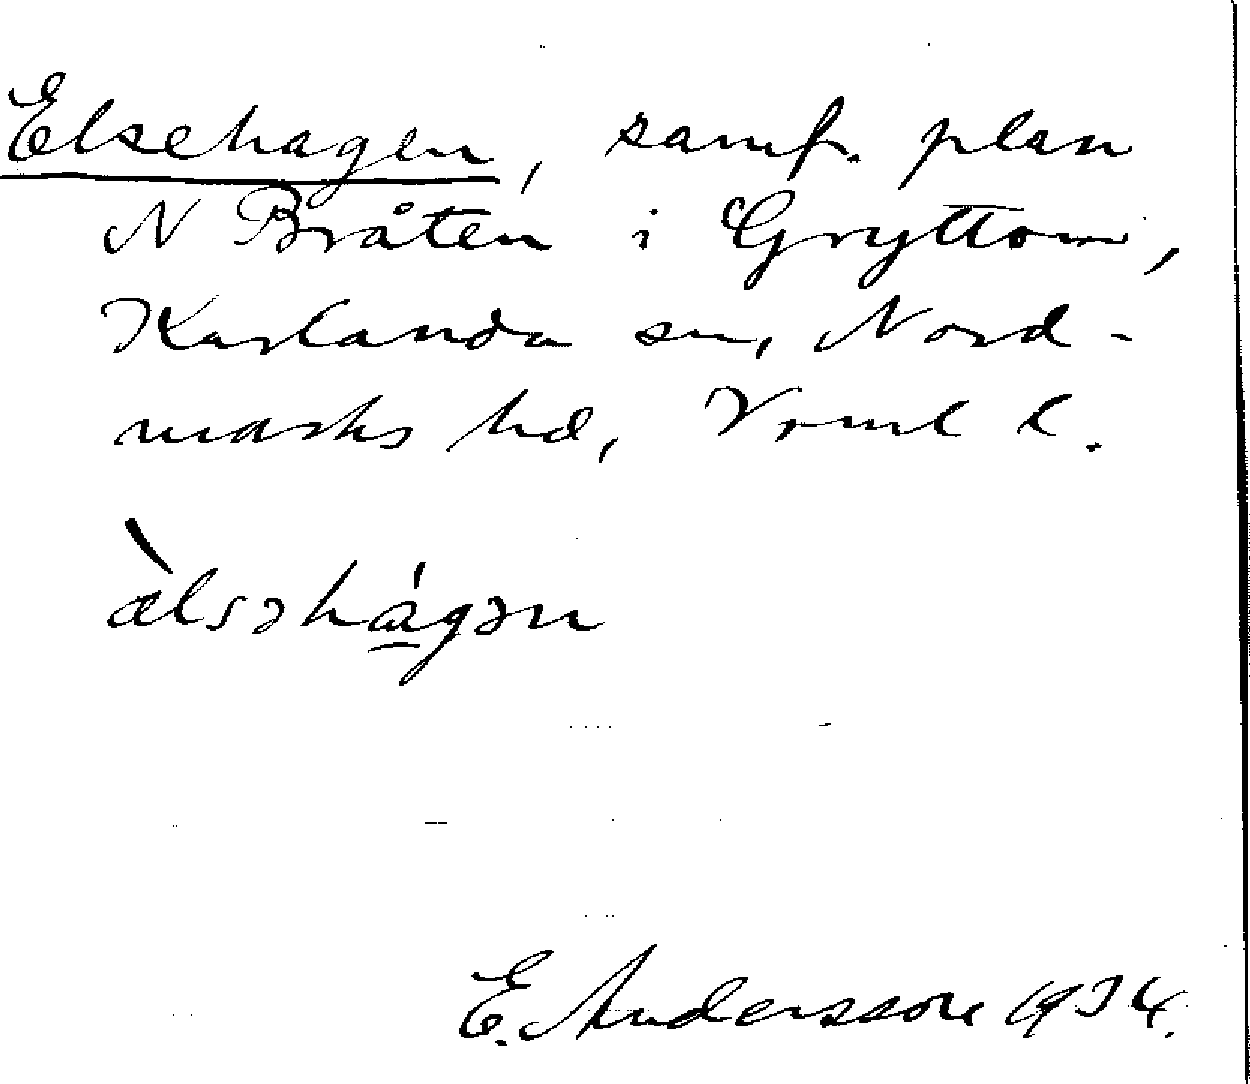 Elsehagen, samf. plan
N Bråten i Gryttom,
Karlanda sn, Nord-
marks hd, Vrml l.
æ̀lsəhágən
E. Andersson 1934.